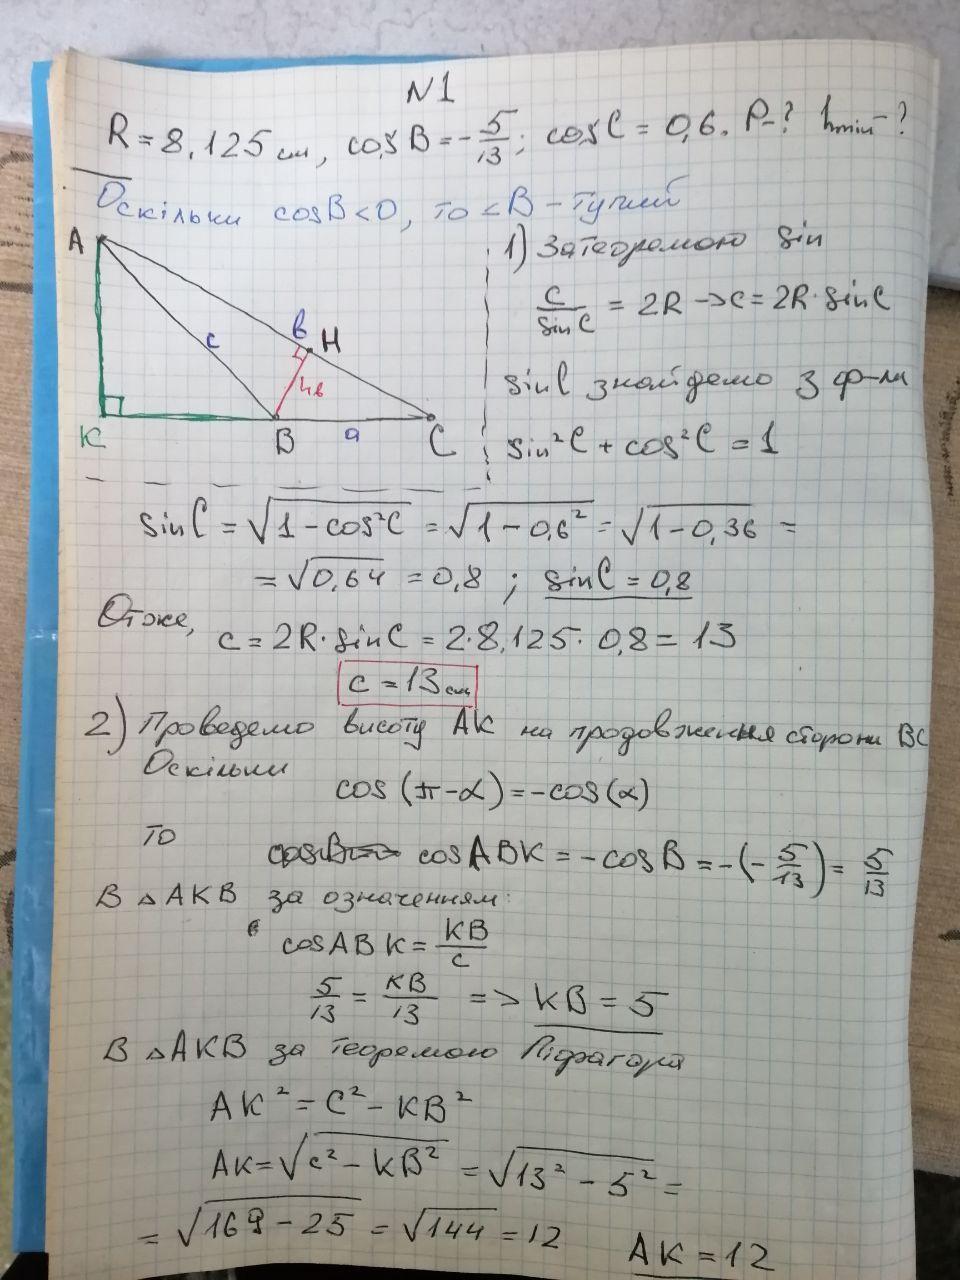 N1
R = 8,125 см, cosB = -5/13; cosC = 0,6. P-? hmin-?
Оскільки cosB<0, то ∠B - тупий
A
в
H
c
hв
K
B
a
C
1) За теоремою sin
c/sinC = 2R -> c = 2R·sinC
sinC знайдемо з ф-ли
sin²C + cos²C = 1
sinC = √(1-cos²C) = √(1-0,6²) = √(1-0,36) =
= √0,64 = 0,8 ; sinC = 0,8
Отже, c = 2R·sinC = 2·8,125·0,8 = 13
c = 13 см
2) Проведемо висоту AK на продовження сторони BC
Оскільки
cos(π-α) = -cos(α)
то
cosABK = -cosB = -(-5/13) = 5/13
В △AKB за означенням:
cosABK = KB/c
5/13 = KB/13 => KB = 5
В △AKB за теоремою Піфагора
AK² = c² - KB²
AK = √(c² - KB²) = √(13² - 5²) =
= √(169 - 25) = √144 = 12 AK = 12